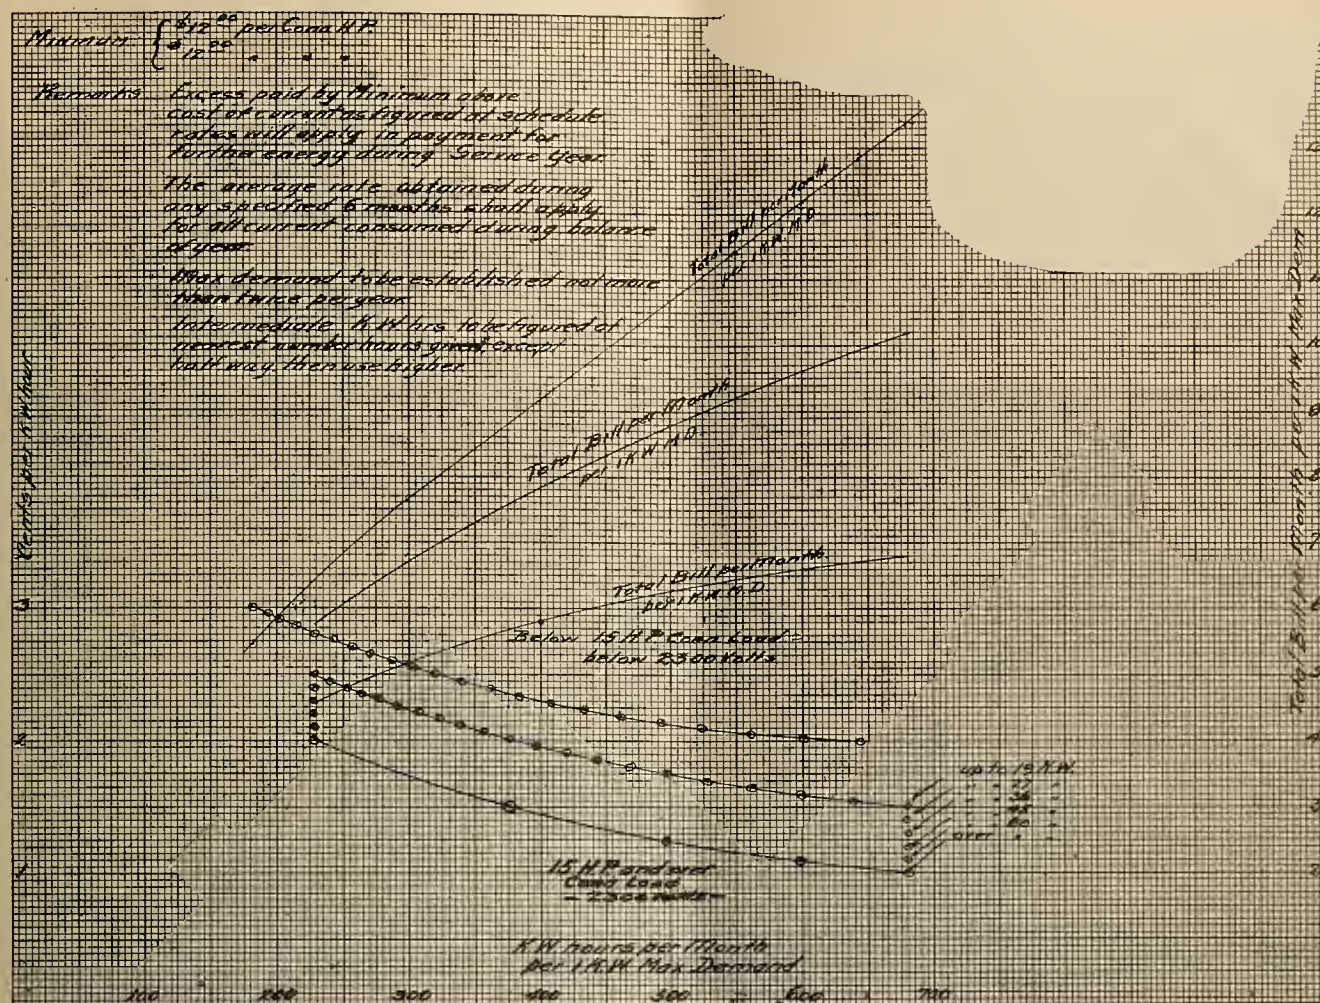 Minimum { $12.00 per Conn H.P.
$12.00 " " "
Remarks Excess paid by Minimum above
cost of current as figured at schedule
rates will apply in payment for
further energy during Service Year
The average rate obtained during
any specified 6 months shall apply
for all current consumed during balance
of year
Max demand to be established not more
than twice per year
Intermediate K.W hrs to be figured at
nearest number hours given, except
half way, then use higher
Cents per KW hour
Total Bill per Month per 1 K.W. Max Dem
Total Bill per Month
per 1 K.W. M.D.
Total Bill per Month
per 1 K.W. M.D.
Total Bill per Month
per 1 K.W. M.D.
Below 15 H P Conn Load -
below 2300 Volts
3
2
1
up to 15 K.W.
60
over " "
15 H.P and over
Conn Load
K W hours per Month
per 1 K.W. Max Demand
100 200 300 400 500 600 700